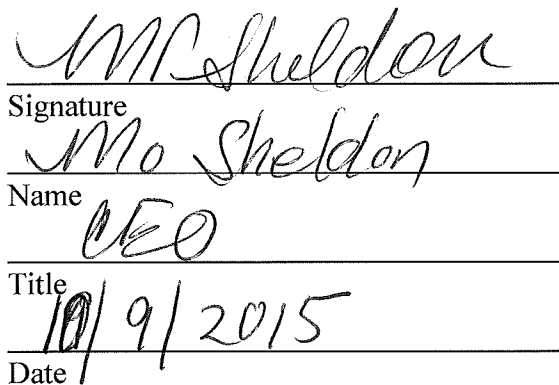 MP Sheldon
Signature
Mo Sheldon
Name
CEO
Title
10/9/2015
Date